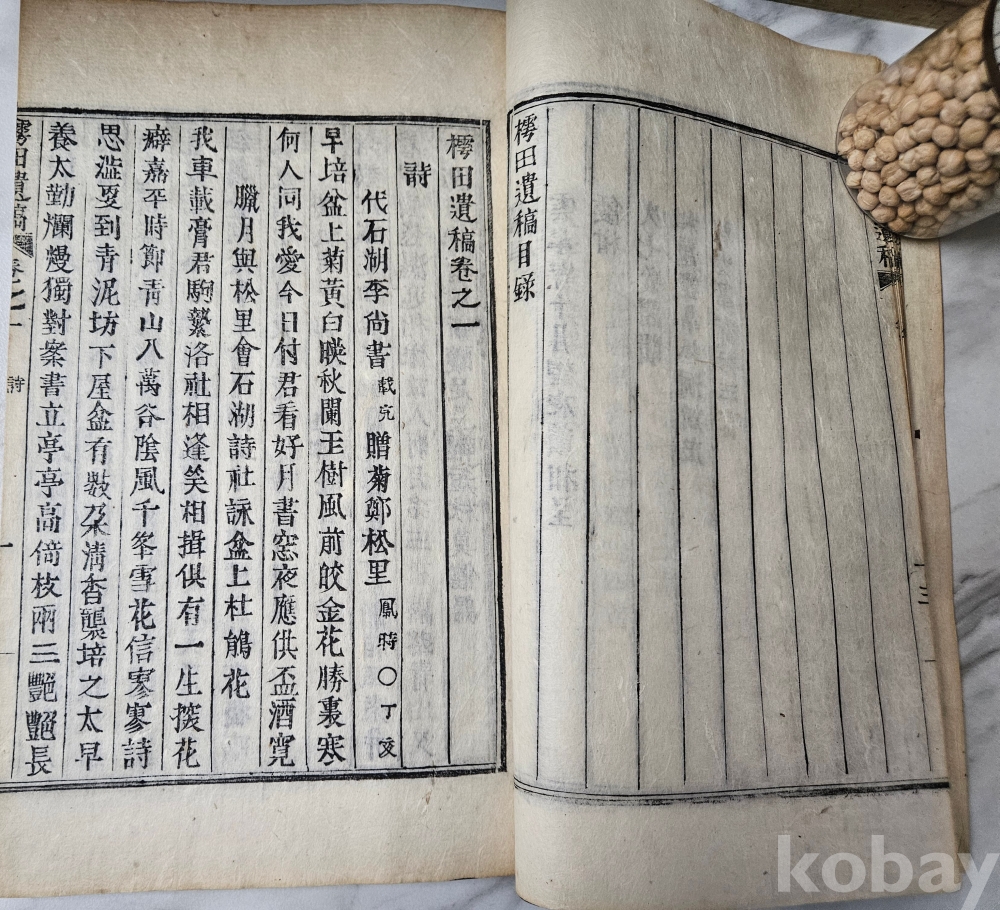 樗田遺稿目錄
遺稿
樗田遺稿卷之一
詩
代石湖李尚書載完贈菊鄭松里鳳時〇丁亥
早培盆上菊黃白暎秋闌玉樹風前皎金花勝裏寒
何人同我愛今日付君看好月書窓夜應供盃酒寬
臘月與松里會石湖詩社詠盆上杜鵑花
我車載膏君駒縶洛社相逢笑相揖俱有一生擬花
癖嘉平時節靑山八萬谷陰風千峯雪花信寥寥詩
思澁更到靑泥坊下屋盆有數朶淸香襲培之太早
養太勤爛熳獨對案書立亭亭高倚枝兩三艶艶長
樗田遺稿 卷之一 詩 一
kobay